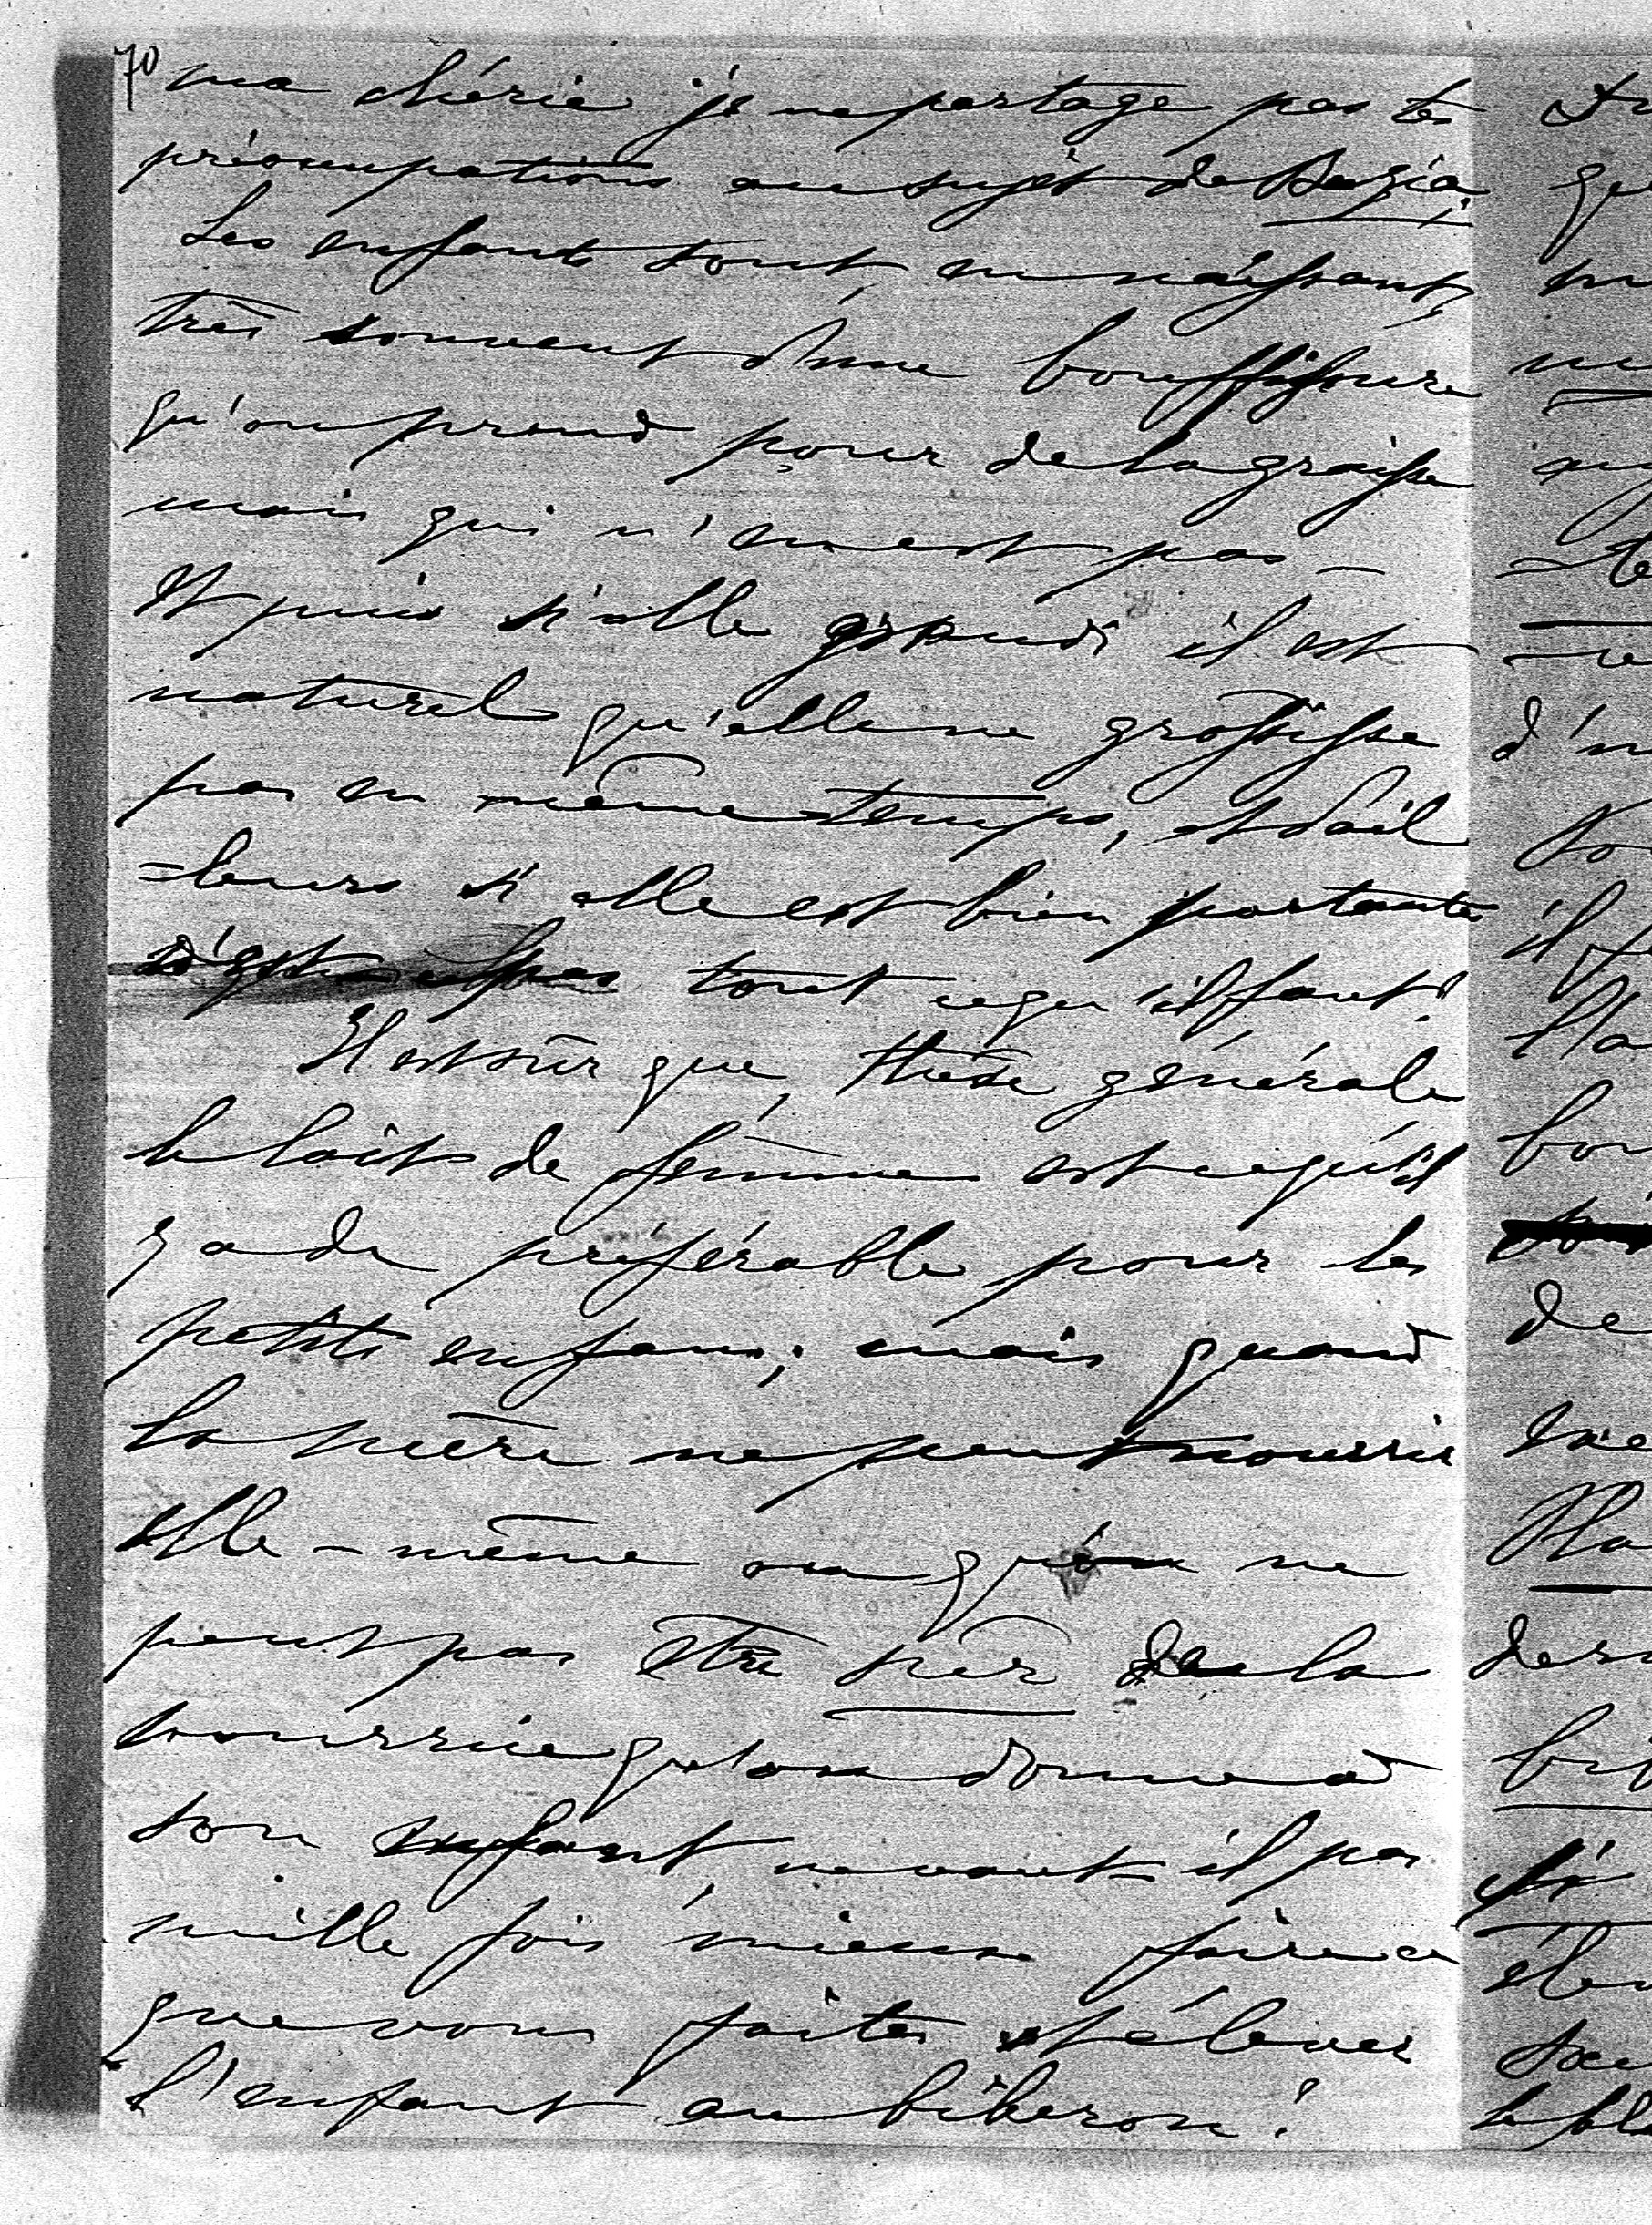 70
ma chérie je ne partage pas tes
préoccupations au sujet de
Les enfants sont en naissant,
très souvent d'une bouffissure
qu'on prend pour de la graisse
mais qui n'en est pas —
Et puis si elle grandi il est
naturel qu'elle ne grossisse
pas en même temps, et d'ail
=leurs si elle est bien portante
n'est-ce pas tout ce qu'il faut?
Il est sûr que, thèse générale
le lait de femme est ce qu'il
y a de préférable pour les
petits enfans; mais quand
la mère ne peut nourrir
elle-même ou qu'on ne
peut pas être sûr de la
nourrice qu'on donne à
son enfant, ne vaut il pas
mille fois mieux faire ce
que vous faites et élever
l'enfant au biberon!